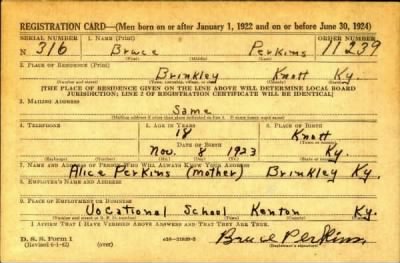 REGISTRATION CARD—(Men born on or after January 1, 1922 and on or before June 30, 1924)
SERIAL NUMBER 1. NAME (Print) ORDER NUMBER
N 316 Bruce Perkins 11239
(First) (Middle) (Last)
2. PLACE OF RESIDENCE (Print)
Brinkley Knott Ky.
(Number and street) (Town, township, village, or city) (County) (State)
[THE PLACE OF RESIDENCE GIVEN ON THE LINE ABOVE WILL DETERMINE LOCAL BOARD
JURISDICTION; LINE 2 OF REGISTRATION CERTIFICATE WILL BE IDENTICAL]
3. MAILING ADDRESS
Same
4. TELEPHONE 5. AGE IN YEARS 6. PLACE OF BIRTH
18 Knott
DATE OF BIRTH
Nov. 8 1923 Ky.
(Exchange) (Number) (Mo.) (Day) (Yr.) (State or country)
7. NAME AND ADDRESS OF PERSON WHO WILL ALWAYS KNOW YOUR ADDRESS
Alice Perkins (mother) Brinkley Ky.
8. EMPLOYER'S NAME AND ADDRESS
9. PLACE OF EMPLOYMENT OR BUSINESS
Vocational School Kenton Ky.
(Number and street) (Town) (County) (State)
I AFFIRM THAT I HAVE VERIFIED ABOVE ANSWERS AND THAT THEY ARE TRUE.
D. S. S. Form 1
(Revised 6-9-41) (over) Bruce Perkins
(Registrant's signature)